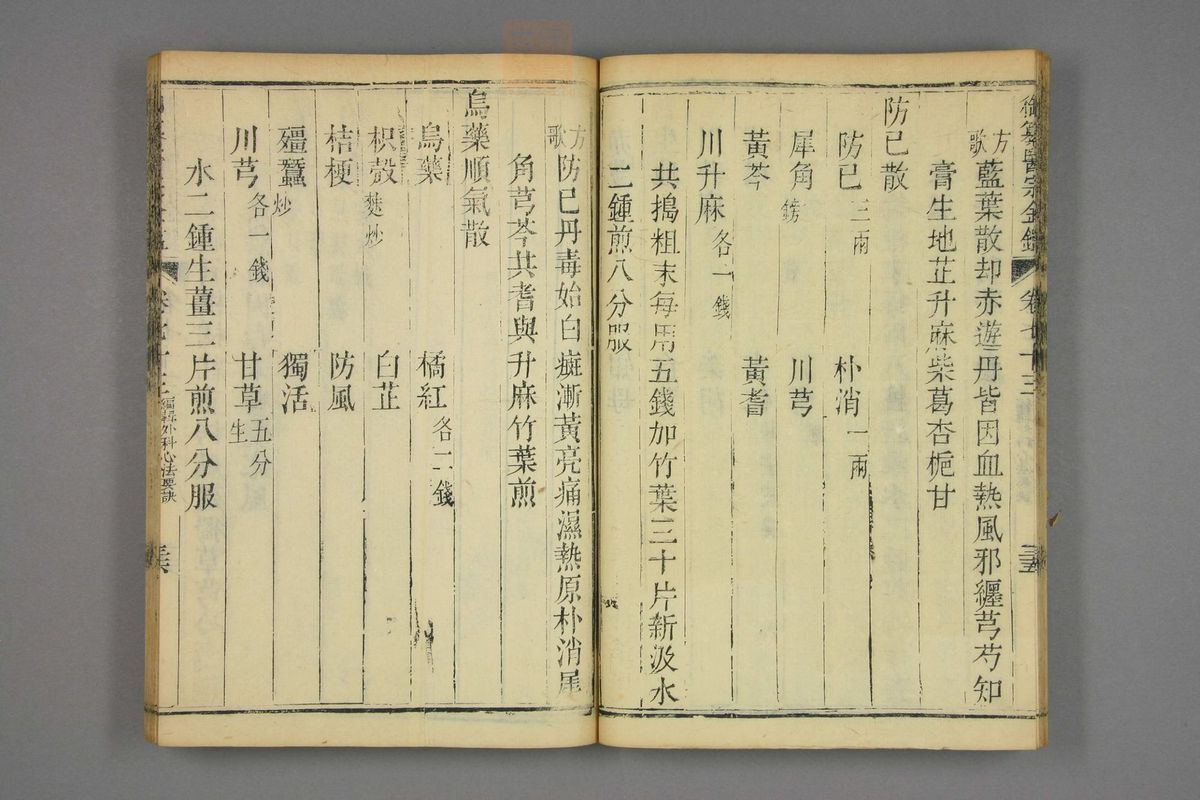 御纂醫宗金鑑 卷七十三 三五
方歌 藍葉散却赤遊丹皆因血熱風邪纏芎芍知
膏生地芷升麻柴葛杏梔甘
防已散
防已三兩 朴消一兩
犀角鎊 川芎
黃芩 黃耆
川升麻各一錢
共搗粗末每用五錢加竹葉三十片新汲水
二鍾煎八分服
方歌 防已丹毒始白㿀漸黃亮痛濕熱原朴消犀
角芎芩共耆與升麻竹葉煎
烏藥順氣散
烏藥 橘紅各二錢
枳殼麩炒 白芷
桔梗 防風
殭蠶炒 獨活
川芎各一錢 甘草生五分
水二鍾生薑三片煎八分服
卷七十三 編輯外科心法要訣 三六